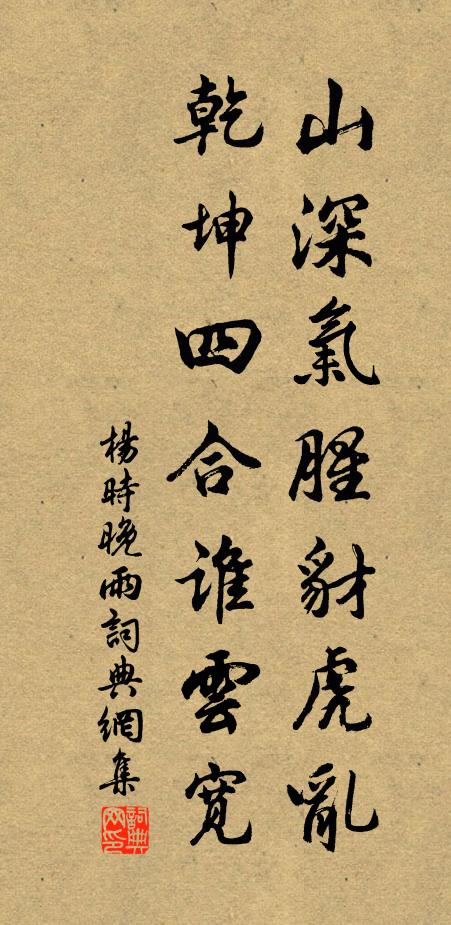 山深氣腥豺虎亂
乾坤四合誰雲寬
楊時晚雨詞典網集
詞典网印